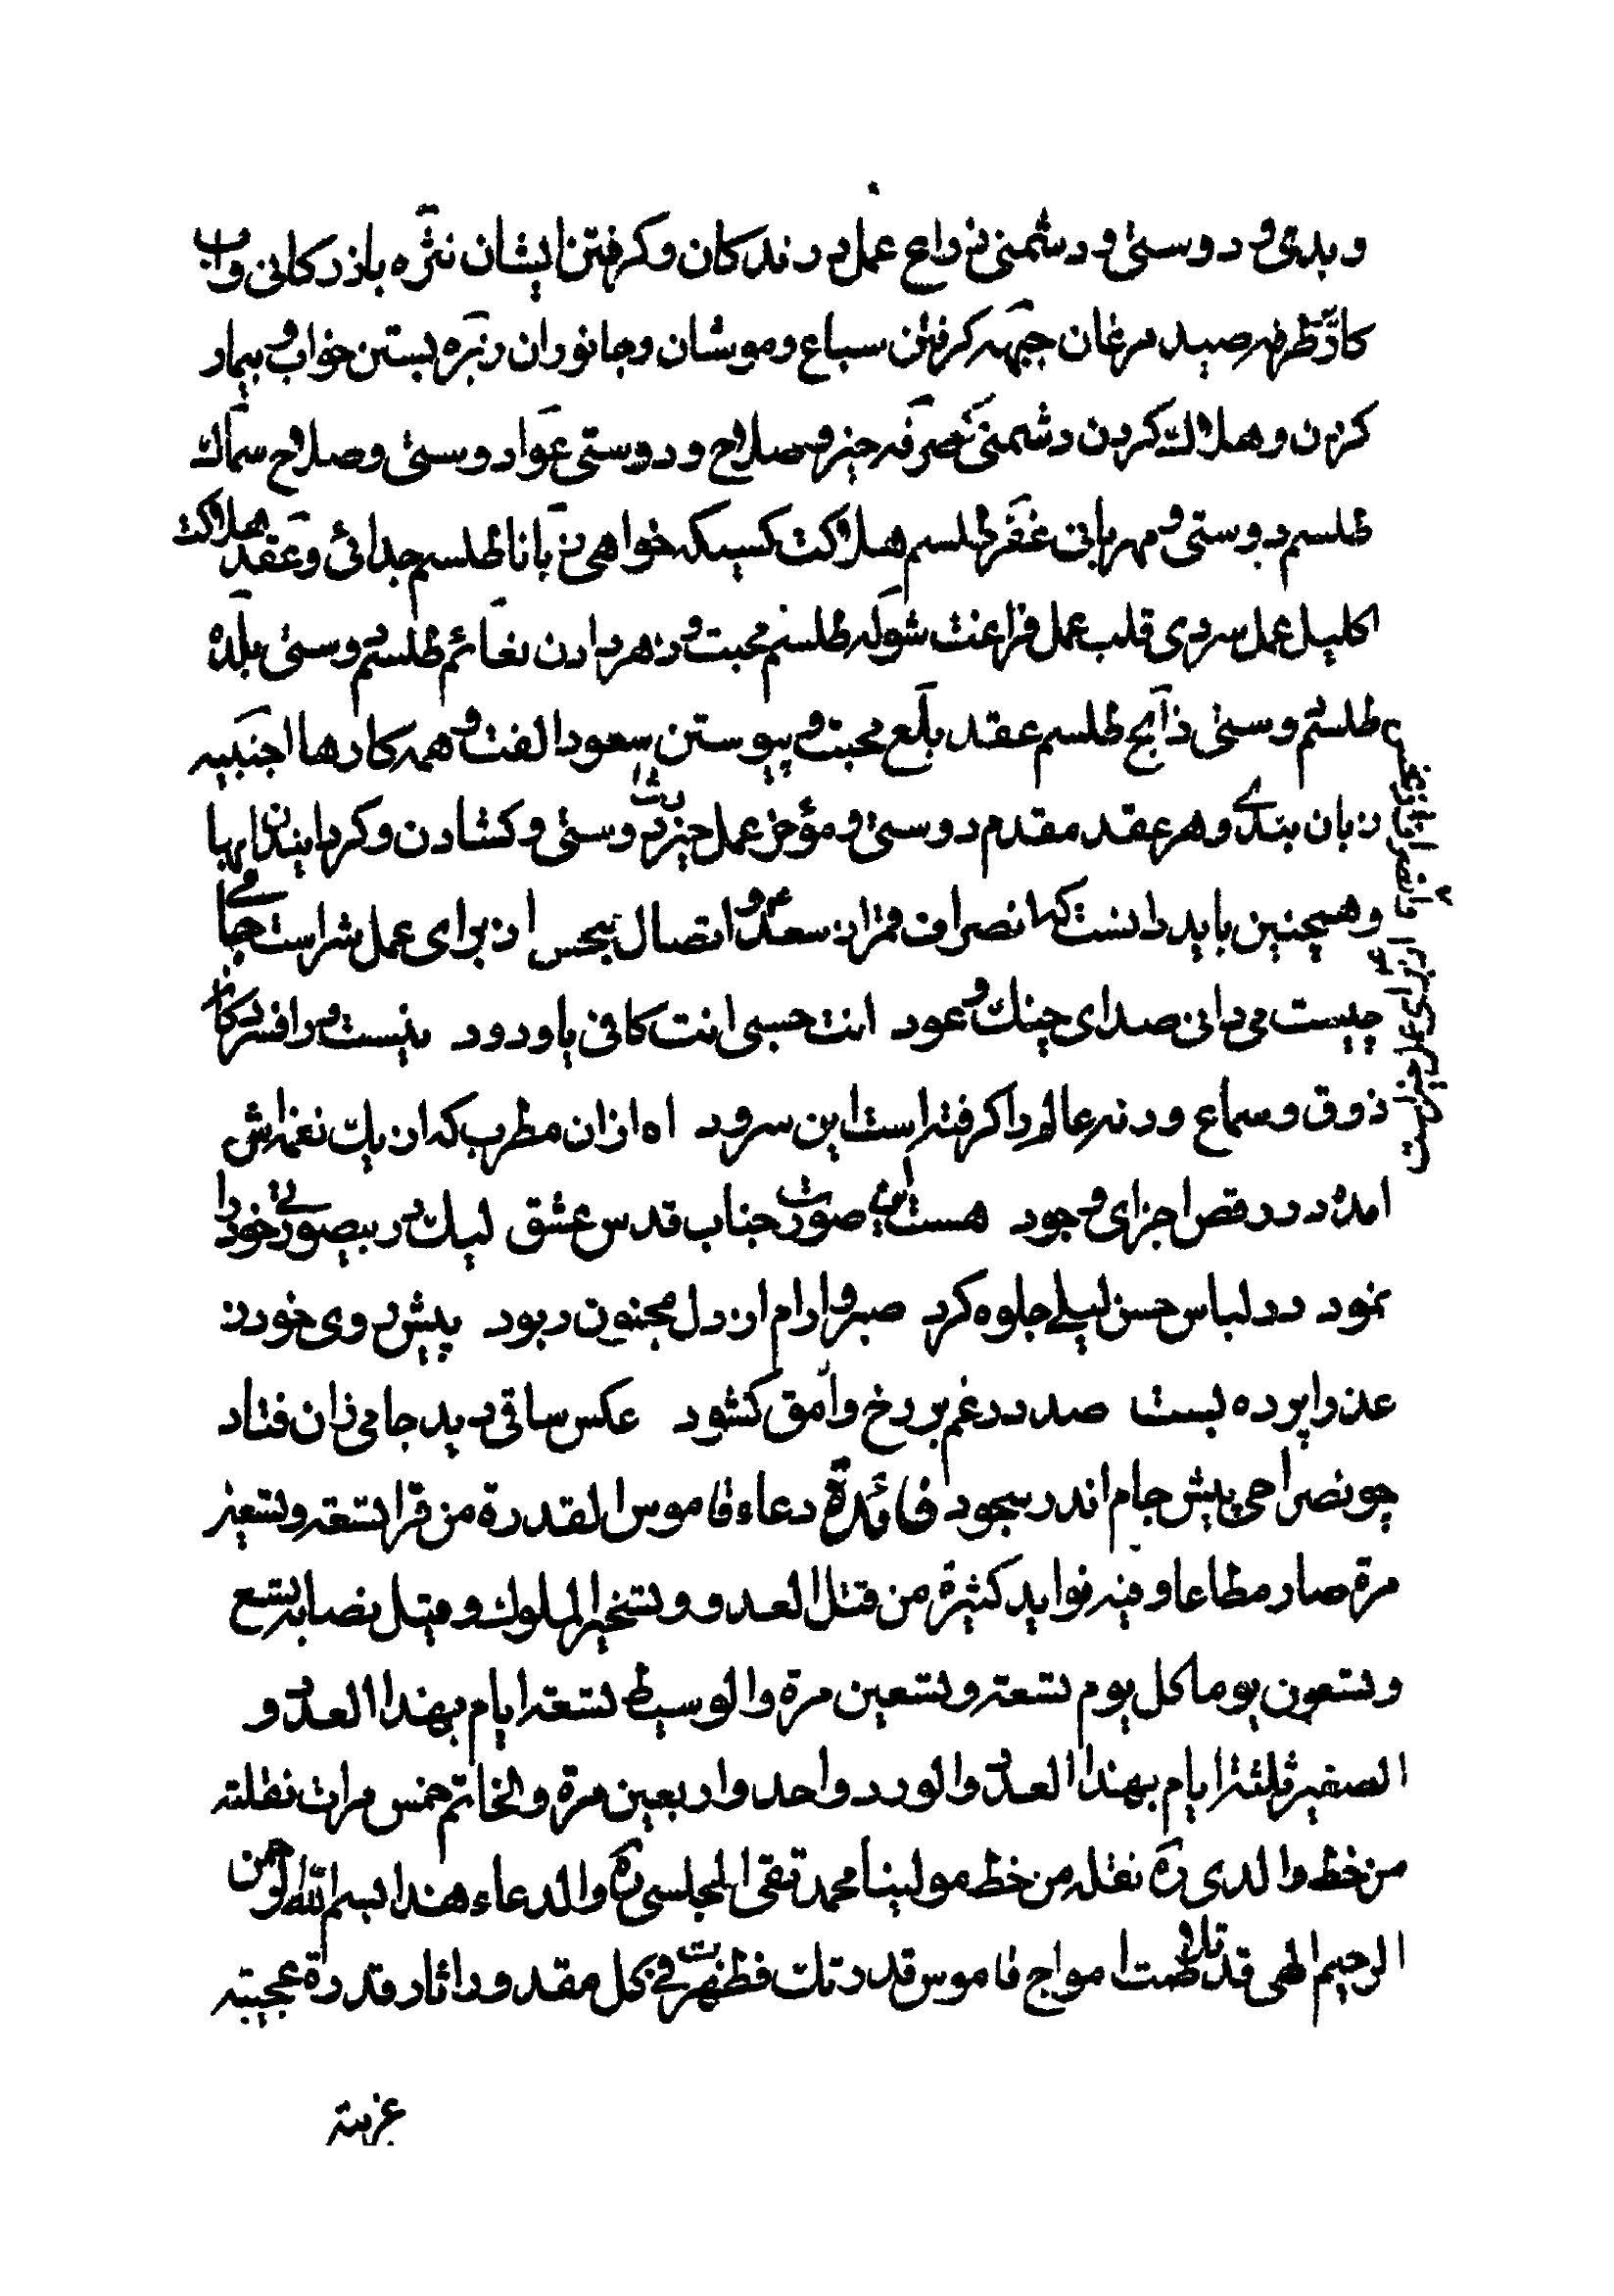 و بدی و دوستی و دشمنی ذراع عمل درندکان و کرفتن ایشان نثره بازرکانی و اب
کار طرفه صید مرغان جبهه کرفتن سباع و موشان و جانوران زبره بستن خواب و بیمار
کردن و هلاک کردن دشمنی صرفه خیر و صلاح و دوستی عوا دوستی و صلاح سماک
طلسم دوستی و مهربانی غفر طلسم هلاکت کسیکه خواهی زبانا طلسم جدائی و عقد هلاکت
اکلیل عمل سردی قلب عمل فراغت شوله طلسم محبت و زهر دادن نعائم طلسم دوستی بلده
طلسم دوستی ذابح طلسم عقد بلع محبت و پیوستن سعود الفت و همه کارها اجنبیه
زبان بندی و هر عقد مقدم دوستی و مؤخر عمل خیر دوستی و کشادن و کرد
و همچنین باید دانست که انصراف قمر از سعد و اتصال بنحس از برای عمل شر است جامی
چیست می دانی صدای چنک و عود انت حسبی انت کافی یا ودود نیست در افسردکان
ذوق و سماع ورنه عالم را کرفته است این سرود اه ازان مطرب که از یک نغمه اش
امده در رقص اجزای وجود هست این صورت جناب قدس عشق لیک در بیصورتی خود را
نمود در لباس حسن لیلی جلوه کرد صبر و ارام از دل مجنون ربود پیش روی خود ز
عذرا پرده بست صد در غم بر رخ وامق کشود عکس ساقی دید جامی زان فتاد
چو نصراحی پیش جام اندر سجود فائدة دعاء قاموس القدرة من قرا تسعة و تسعین
مرة صار مطاعا و فیه فواید کثیرة من قتل العدو و تسخیر الملوک و قیل نصابه تسع
و تسعون یوما کل یوم تسعة و تسعین مرة و الوسیط تسعة ایام بهذا العدد و
الصغیر ثلثة ایام بهذا العدد و الورد واحد و اربعین مرة و الخاتم خمس مرات نقلته
من خط والدی ره نقله من خط مولینا محمد تقی المجلسی ره و الدعاء هذا بسم الله الرحمن
الرحیم الهی قد تلاطمت امواج قاموس قدرتک فظهرت فی کل مقدور اثار قدرة عجیبة
غریبة